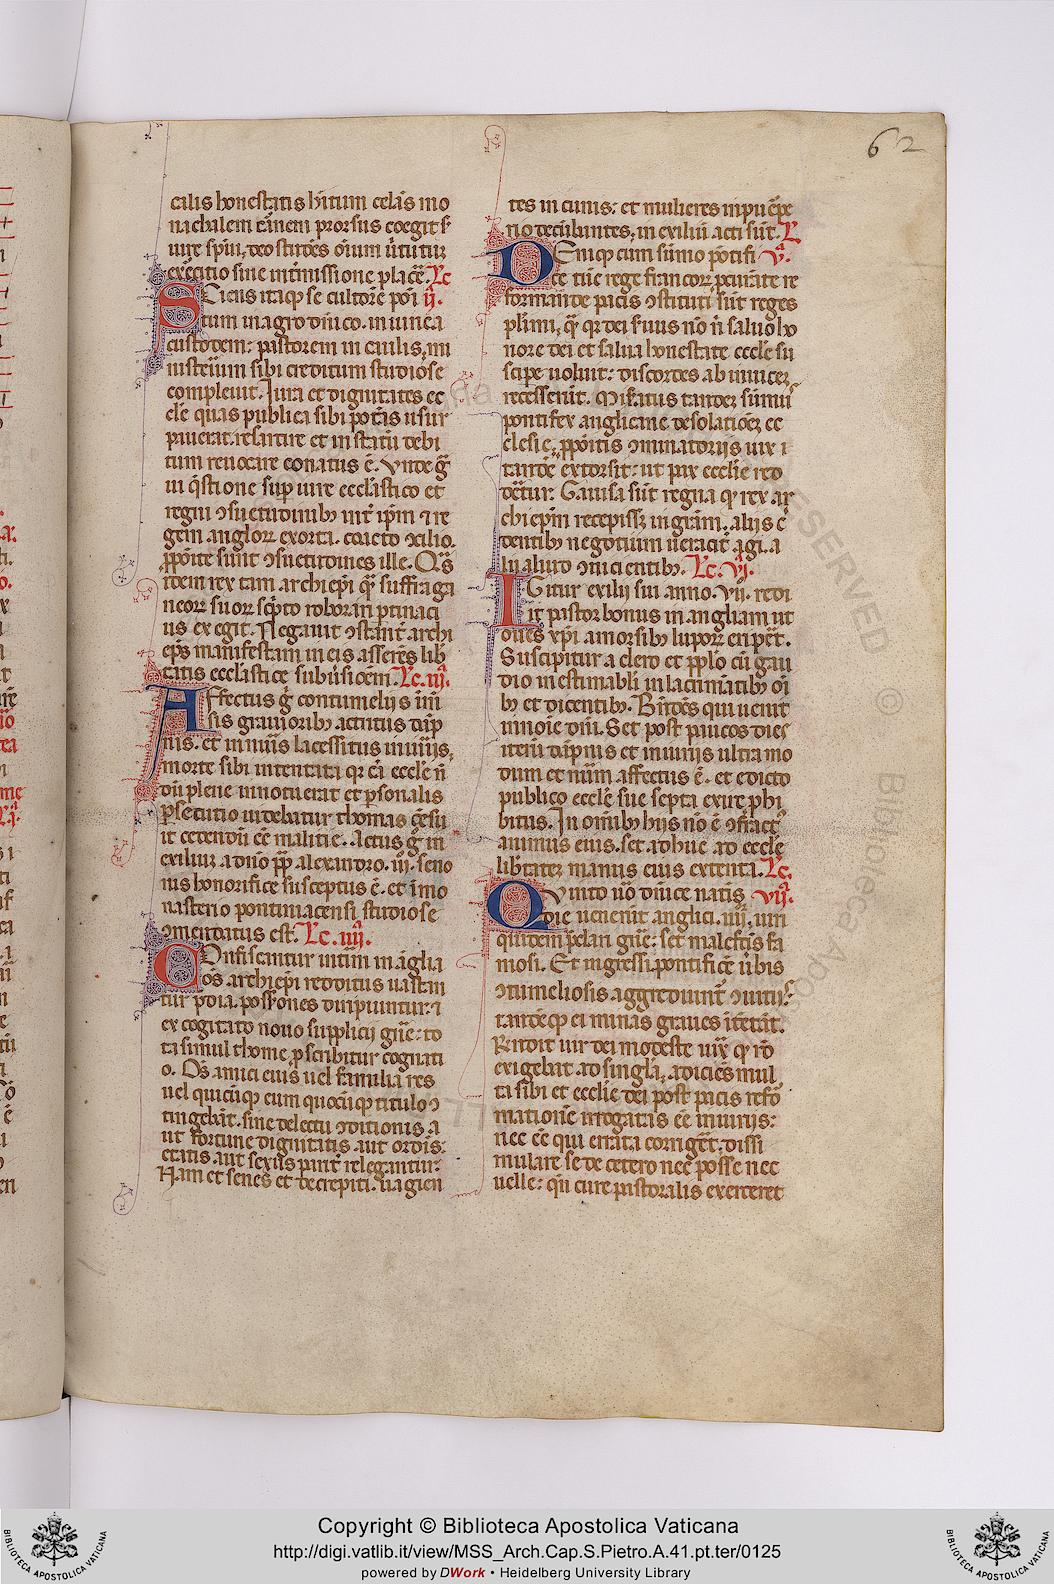 62
calis honestatis hītum celās mo
nachalem cīnem prorsus coegit ꝭ
uire spūi, deo studēs oīum ūtutuꝫ
exercitio sine intmissione placē. Lc̄
Sciens itaqꝫ se cultorē poī ij.
tum in agro dn̄ico. in uinea
custodem: pastorem in caulis, mi
nisteriū sibi creditum studiose
compleuit. Iura et dignitates ec
cl̄e quas publica sibi potās usur
pauerat. resarcire et in statū debi
tum reuocare conatus ē. Vnde ḡ
ui q̄stione sup iure ecclīastico et
regni ꝯsuetudinibꝫ int̄ ip̄m ⁊ re
gem anglorꝝ exorta. coacto ꝯcilio.
ꝓpoīte sunt ꝯsuetudines ille. Q̄s
idem rex tam archiep̄i q̄ȝ suffraga
neorꝝ suorꝝ sc̄pto roborari ptinaci
us exegit. Negauit ꝯstant̄ archi
ep̄s manifestam in eis asserēs lib̄
tatis ecclesticę subūsiōem. Lc̄. iij.
Affectus ḡ contumelijs īm̄
sis grauioribꝫ actritus dāp
nis. et innuīs lacessitus iniurijs,
morte sibi intentata qr cā eccl̄e n̄
dū plene innotuerat et ꝑsonalis
ꝑsecutio uidebatur thomas cēsu
it cedendū eē malitie. Actus ḡ in
exiliuꝫ a dn̄o pp̄ alexandro. iij. seno
nis honorifice susceptus ē. et ī mo
nasterio pontiniacensi studiose
ꝯmendatus est. Lc̄. iiij.
Confiscantur intīm in āglia
oēs archiep̄i redditus uastān
tur p̄dia. poss̄iones diripiuntur. ⁊
ex cogitato nouo supplicij gn̄e: to
ta simul thome ꝓscribitur cognati
o. Oēs amici eius uel familiares
uel quicūqꝫ eum quocūqꝫ titulo ꝯ
tingebāt. sine delectu ꝯditionis. a
ut fortune dignitatis aut ordīs:
etatis. aut sexus parit̄ relegantur.
Nam et senes et decrepiti. uagien
tes in cunis: et mulieres in pu͞epe
rio decubantes, in exiliū acti sūt. L̄
Deniqꝫ cum sūmo pōtifi v̄.
ce tūc rege francorꝝ pcurāte re
formande pacis ꝯstituti sūt reges
plīmi, q̄ qr dei seruus nō n̄ saluo ho
nore dei et salua honestate eccl̄e su
scipe uoluit: discordes ab inuiceꝫ
recesserūt. Misatus tandeꝫ sūmū
pontifex anglicane desolationeꝫ ec
clesie. ꝓpoītis ꝯminatorijs uix i
tandē extorsit: ut pax ecclīe red
deretur. Gauisa sūt regna qꝫ rex ar
chiep̄m recepiss3 in gratiam. alijs c̄
dentibꝫ negotium ueracit̄ agi. a
lijs aliud ꝯnicientibꝫ. Lc̄. vj.
IGitur exilij sui anno. vij. redi
it pastor bonus in angliam ut
oues xp̄i a morsibꝫ luporꝝ eripēt.
Suscipitur a clero et ꝓplo cū gau
dio inestimabili in lacrimātibꝫ oī
bꝫ et dicentibꝫ. Bn̄dēs qui uenit
in noīe dn̄i. Set post paucos dies
iterū dāpnis et iniurijs ultra mo
dum et nūm affectus ē. et edicto
publico eccl̄e sue septa exire ꝓhi
bitus. In om̄ibꝫ hijs nō ē ꝯfract̄
animus eius. set adhuc ad eccl̄e
libtateꝫ manus eius extenta. Lc̄.
Quinto uō dn̄ice natis vij.
die uenerūt anglici. iiij. uiri
quidem p̄clari gn̄e: set malefctīs fa
mosi. Et ingressi. pontificē ūbis
ꝯtumeliosis aggrediunt̄ ꝯuitijs:
tandēqꝫ ei minas graues ītētāt.
Rn̄dit uir dei modeste uix qꝫ rō
exigebat ad singla, adiciēs mul
ta sibi et ecclīe dei post pacis refo
mationē irrogatas eē iniurijs:
nec eē qui errata corriget. dissi
mulare se de cetero nec posse nec
uelle: q̄n cure pastoralis exerceret
Copyright © Biblioteca Apostolica Vaticana
http://digi.vatlib.it/view/MSS_Arch.Cap.S.Pietro.A.41.pt.ter/0125
powered by DWork • Heidelberg University Library
BIBLIOTECA APOSTOLICA VATICANA
BIBLIOTECA APOSTOLICA VATICANA